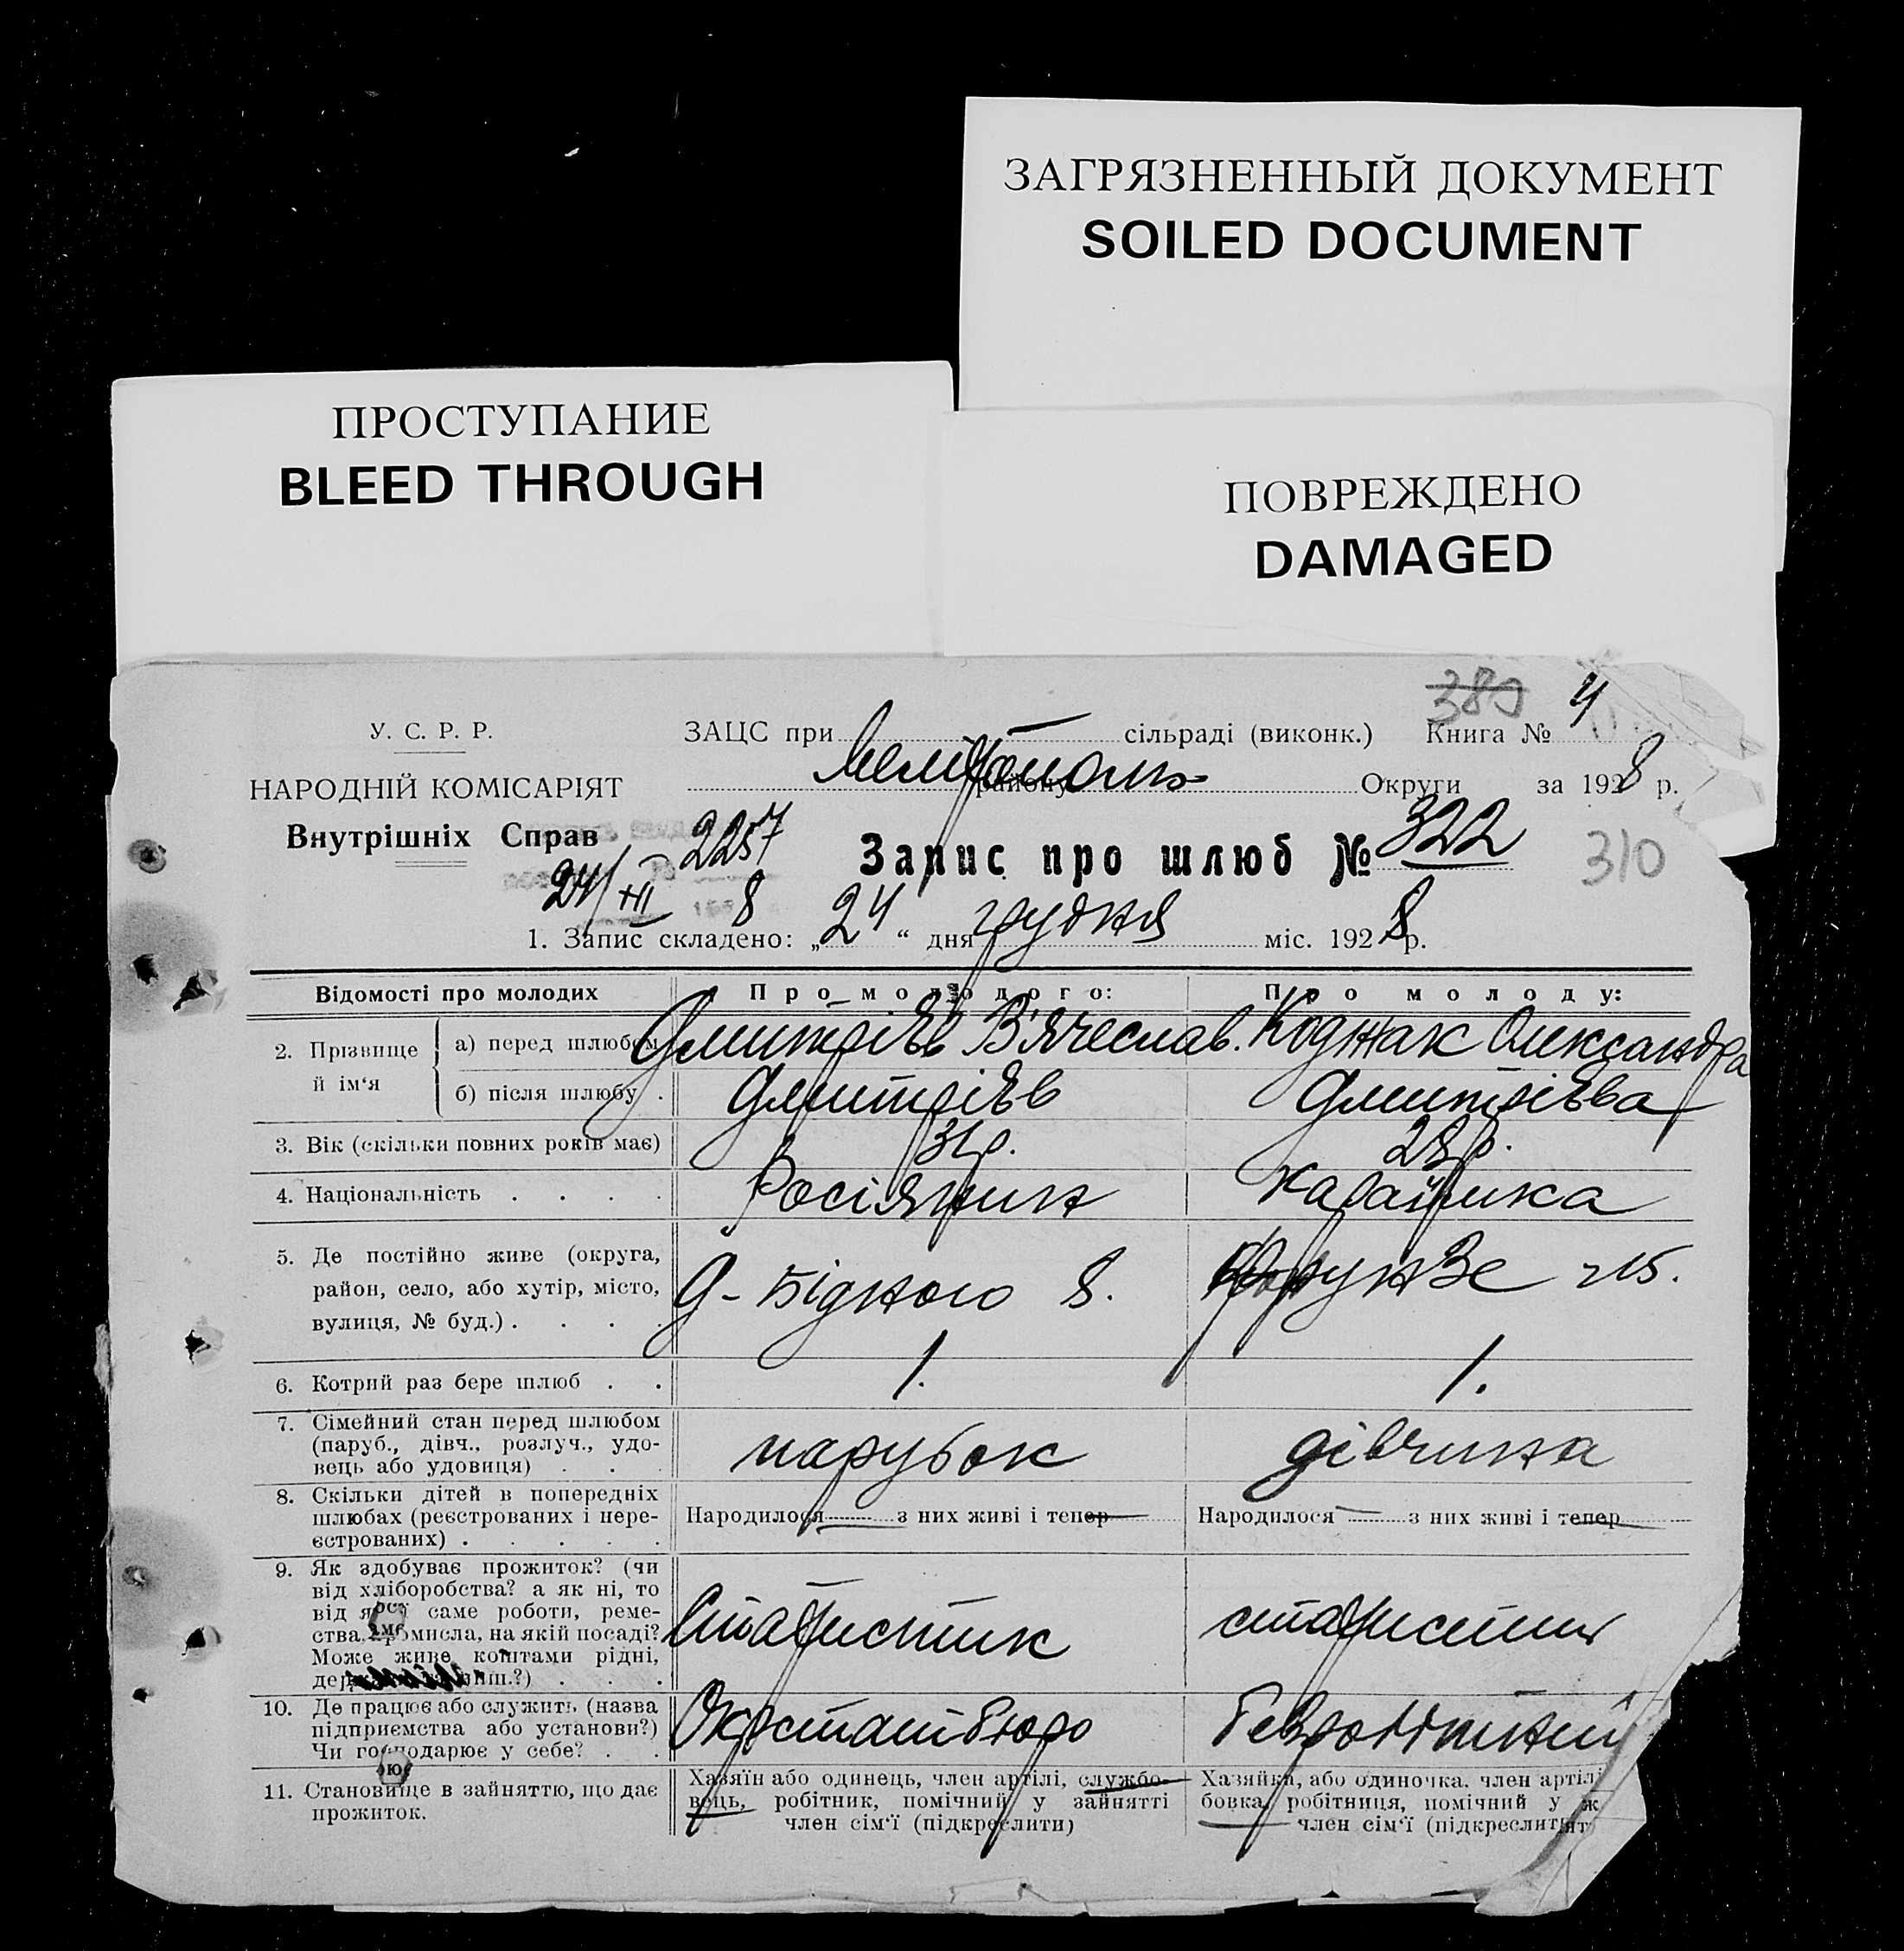 ЗАГРЯЗНЕННЫЙ ДОКУМЕНТ
SOILED DOCUMENT
ПРОСТУПАНИЕ
BLEED THROUGH
ПОВРЕЖДЕНО
DAMAGED
389 4
У. С. Р. Р. ЗАЦС при сільраді (виконк.) Книга №
НАРОДНІЙ КОМІСАРІЯТ Мелітополь району Округи за 1928 р.
Внутрішніх Справ 2257 Запис про шлюб № 322 310
24/XII 8
1. Запис складено: „24“ дня грудня міс. 1928 р.
Відомості про молодих Про молодого: Про молоду:
2. Прізвище й ім‘я а) перед шлюбом Дмитрієв В'ячеслав. Коджак Олександра
б) після шлюбу . Дмитрієв Дмитрієва
3. Вік (скільки повних років має) 31 р. 28 р.
4. Національність . . . . Росіянин караїмка
5. Де постійно живе (округа,
район, село, або хутір, місто, Д-Бідного 8. Фрунзе 215.
вулиця, № буд.) . . . .
6. Котрий раз бере шлюб . . 1. 1.
7. Сімейний стан перед шлюбом
(паруб., дівч., розлуч., удо- парубок дівчина
вець або удовиця) . . .
8. Скільки дітей в попередніх
шлюбах (реєстрованих і нере- Народилося — з них живі і тепер — Народилося — з них живі і тепер —
єстрованих) . . . . .
9. Як здобуває прожиток? (чи
від хліборобства? а як ні, то
від якої саме роботи, реме- Статистик статистик
ства, промисла, на якій посаді?
Може живе коштами рідні,
10. Де працює або служить (назва
підприємства або установи?) Окрстатбюро
Чи господарює у себе? . .
11. Становище в зайняттю, що дає Хазяїн або одинець, член артілі, службо- Хазяйка, або одиночка, член артілі
прожиток. вець, робітник, помічний у зайнятті бовка, робітниця, помічний у
член сім‘ї (підкреслити) член сім‘ї (підкреслит